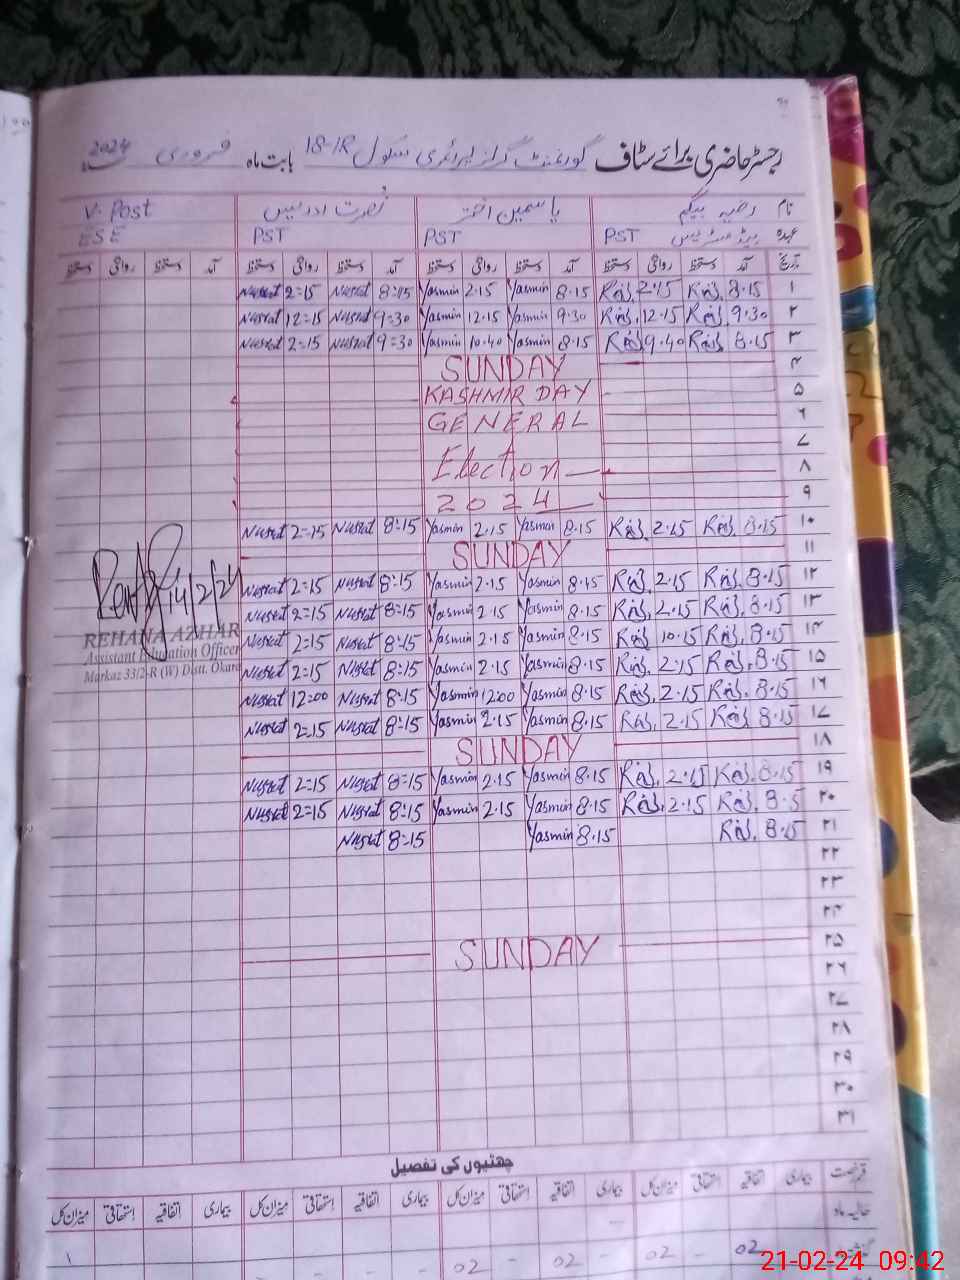 رجسٹر حاضری برائے سٹاف گورنمنٹ گرلز پرائمری سکول 18-1R بابت ماہ فروری 2024ء
نام رضیہ بیگم یاسمین اختر نصرت ادریس V. Post
عہدہ ہیڈ مسٹریس PST PST PST ESE
تاریخ آمد دستخط روانگی دستخط آمد دستخط روانگی دستخط آمد دستخط روانگی دستخط آمد دستخط روانگی دستخط
۱ 8.15 2.15 8.15 Yasmin 2.15 Yasmin 8=15 Nusrat 2=15 Nusrat
۲ 9.30 12.15 9.30 Yasmin 12.15 Yasmin 9=30 Nusrat 12=15 Nusrat
۳ 8.15 9.40 8.15 Yasmin 10.40 Yasmin 9=30 Nusrat 2=15 Nusrat
۴ SUNDAY
۵ KASHMIR DAY
۶ GENERAL
۷
۸ Election
۹ 2024
۱۰ 8.15 2.15 8.15 Yasmin 2.15 Yasmin 8=15 Nusrat 2=15 Nusrat
۱۱ SUNDAY
۱۲ 8.15 2.15 8.15 Yasmin 2.15 Yasmin 8=15 Nusrat 2=15 Nusrat
۱۳ 8.15 2.15 8.15 Yasmin 2.15 Yasmin 8=15 Nusrat 2=15 Nusrat
۱۴ 8.15 10.15 8.15 Yasmin 2.15 Yasmin 8=15 Nusrat 2=15 Nusrat
۱۵ 8.15 2.15 8.15 Yasmin 2.15 Yasmin 8=15 Nusrat 2=15 Nusrat
۱۶ 8.15 2.15 8.15 Yasmin 12.00 Yasmin 8=15 Nusrat 12=00 Nusrat
۱۷ 8.15 2.15 8.15 Yasmin 2.15 Yasmin 8=15 Nusrat 2=15 Nusrat
۱۸ SUNDAY
۱۹ 8.15 2.15 8.15 Yasmin 2.15 Yasmin 8=15 Nusrat 2=15 Nusrat
۲۰ 2.15 8.15 Yasmin 2.15 Yasmin 8=15 Nusrat 2=15 Nusrat
۲۱ 8.15 8.15 Yasmin 8=15 Nusrat
۲۲
۲۳
۲۴
۲۵ SUNDAY
۲۶
۲۷
۲۸
۲۹
۳۰
۳۱
14/2/24
REHANA AZHAR
Assistant Education Officer
Markaz 33/2-R (W) Distt. Okara
چھٹیوں کی تفصیل
قسم رخصت بیماری اتفاقیہ استحقاقی میزان کل بیماری اتفاقیہ استحقاقی میزان کل بیماری اتفاقیہ استحقاقی میزان کل بیماری اتفاقیہ استحقاقی میزان کل
حالیہ ماہ
02 - 02 - 02 - 02
21-02-24 09:42